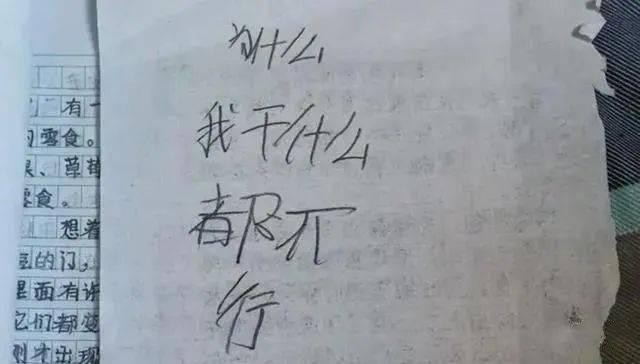 为什么
我干什么
都不
行
有一
的零食。
果、草莓
零食。
想着
的门，
里面有许
它们都变
刚才出现